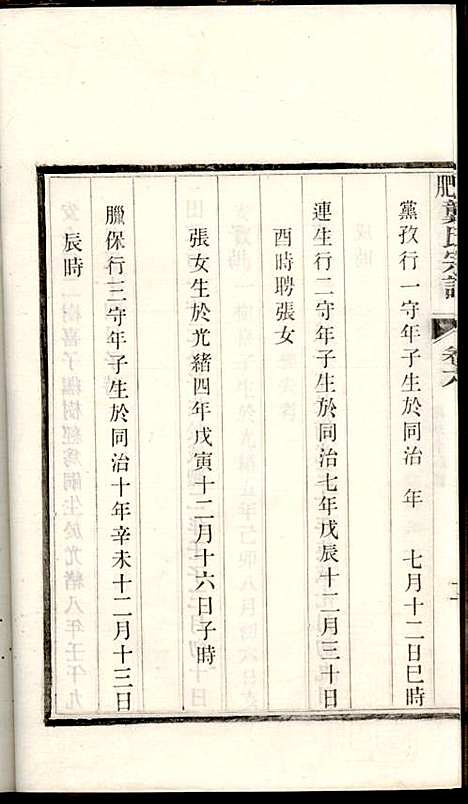 肥龔氏宗譜
卷六
黨孜行一守年子生於同治 年 七月十二日巳時
連生行二守年子生於同治七年戊辰十二月三十日
酉時聘張女
張女生於光緒四年戊寅十二月十六日子時
臘保行三守年子生於同治十年辛未十二月十三日
辰時